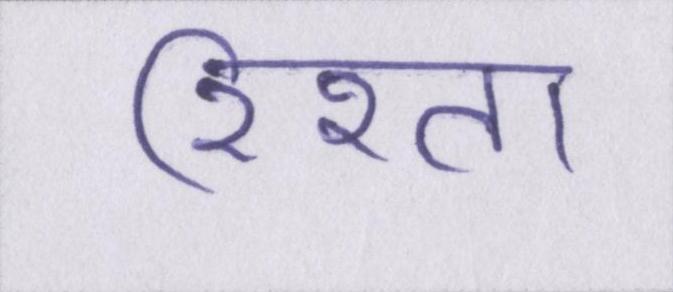 रिश्ता